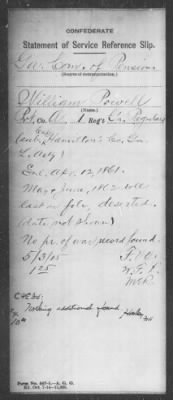 CONFEDERATE
Statement of Service Reference Slip.
Ga. Com. of Pensions
(Source of communication.)
William Powell
(Name.)
Pvt. Co. 1 Reg't Ga. Regulars
Hamilton's Co. Ga.
L. Arty)
Enl. Apr. 12, 1861.
May & June, 1862 roll
last on file, deserted
(date not shown)
No pr. of war record found.
5/3/15
125
Nothing additional found
Form No. 407-1—A. G. O.